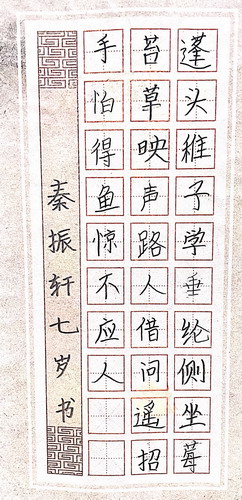 蓬头稚子学垂纶侧坐莓
苔草映声路人借问遥招
手怕得鱼惊不应人
秦振轩七岁书